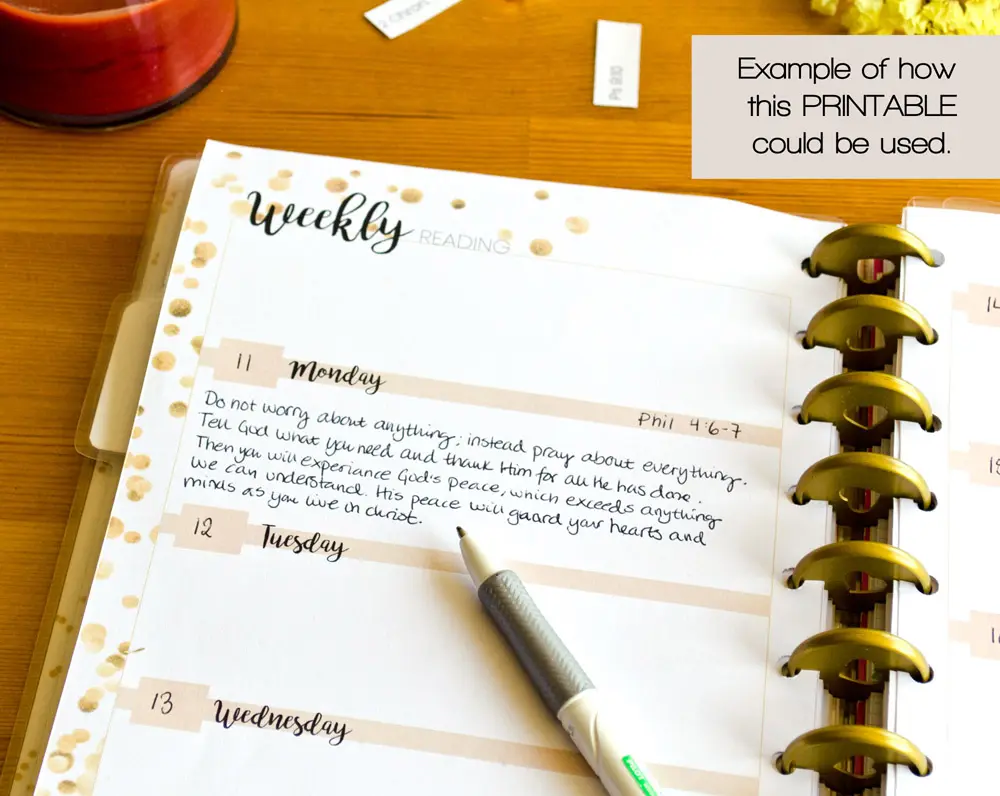 2 Chron
Ps 9:10
Example of how
this PRINTABLE
could be used.
Weekly READING
11 Monday
Phil 4:6-7
Do not worry about anything; instead pray about everything.
Tell God what you need and thank Him for all He has done.
Then you will experiance God's peace, which exceeds anything
we can understand. His peace will guard your hearts and
minds as you live in christ.
12 Tuesday
13 Wednesday
PILOT
14